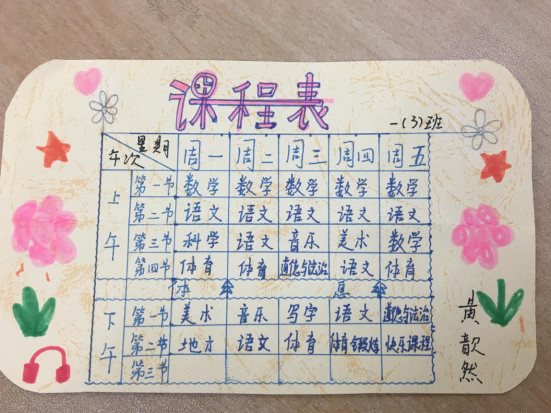 课程表
一(3)班
星期 周一 周二 周三 周四 周五
午次
上午 第一节 数学 数学 数学 数学 数学
第二节 语文 语文 语文 语文 语文
第三节 科学 语文 音乐 美术 数学
第四节 体育 体育 道德与法治 语文 体育
午 会 息 会
下午 第一节 美术 音乐 写字 语文 道德与法治
第二节 地方 语文 体育 体育锻炼 快乐课程
第三节
黄歆然